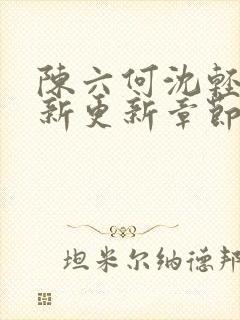 陳六何沈輕
新更新章節
坦米尔纳德邦